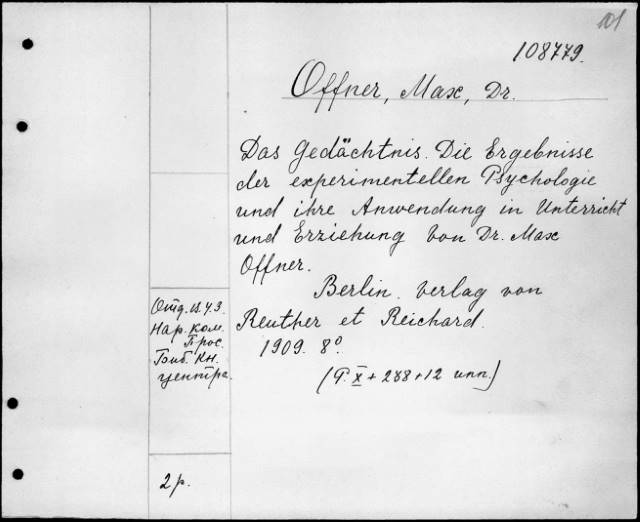 101
108779.
Offner, Max, Dr.
Das Gedächtnis. Die Ergebnisse
der experimentellen Psychologie
und ihre Anwendung in Unterricht
und Erziehung von Dr. Max
Offner.
Berlin. Verlag von
Reuther et Reichard.
1909. 8°.
(P. X + 238 + 12 unn.)
Нар. ком.
Прос.
Библ. Кн.
центра.
2 р.